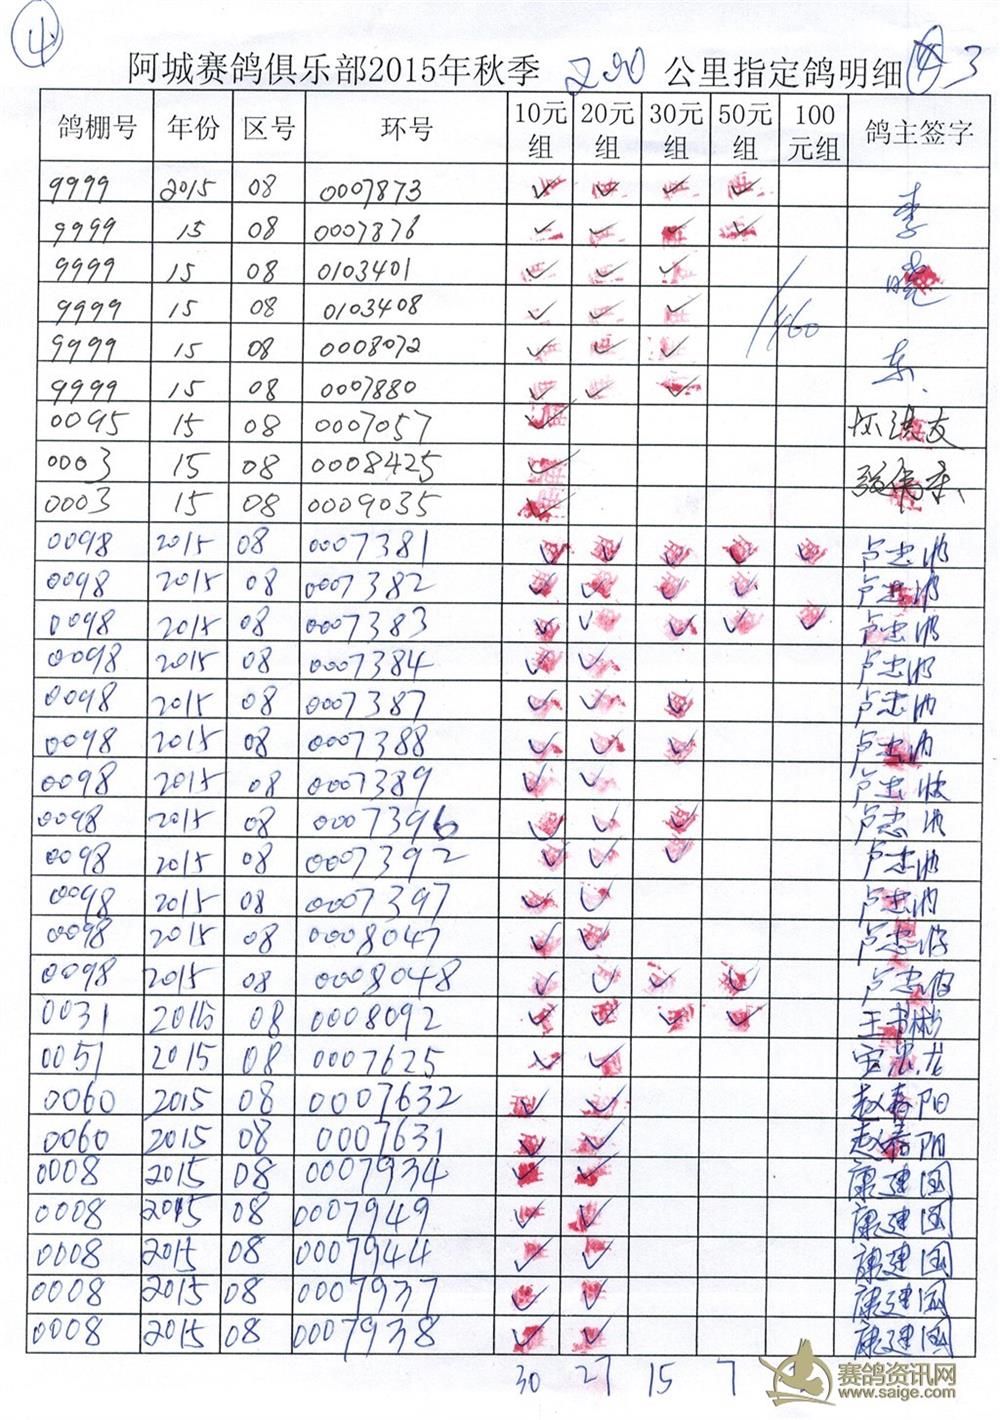 4
阿城赛鸽俱乐部2015年秋季 200 公里指定鸽明细 3
鸽棚号 年份 区号 环号 10元组 20元组 30元组 50元组 100元组 鸽主签字
9999 2015 08 0007873 ✓ ✓ ✓ ✓ 李
9999 15 08 0007876 ✓ ✓ ✓ ✓
9999 15 08 0103401 ✓ ✓ ✓ 晓
9999 15 08 0103408 ✓ ✓ ✓ 1460
9999 15 08 0008072 ✓ ✓ ✓ 东
9999 15 08 0007880 ✓ ✓ ✓
0095 15 08 0007057 ✓
0003 15 08 0008425 ✓
0003 15 08 0009035 ✓
0098 2015 08 0007381 ✓ ✓ ✓ ✓ ✓ 卢忠波
0098 2015 08 0007382 ✓ ✓ ✓ ✓ 卢忠波
0098 2015 08 0007383 ✓ ✓ ✓ ✓ ✓ 卢忠波
0098 2015 08 0007384 ✓ ✓ 卢忠波
0098 2015 08 0007387 ✓ ✓ ✓ 卢忠波
0098 2015 08 0007388 ✓ ✓ ✓ 卢忠波
0098 2015 08 0007389 ✓ ✓ 卢忠波
0098 2015 08 0007396 ✓ ✓ ✓ 卢忠波
0098 2015 08 0007392 ✓ ✓ ✓ 卢忠波
0098 2015 08 0007397 ✓ ✓ 卢忠波
0098 2015 08 0008047 ✓ ✓ 卢忠波
0098 2015 08 0008048 ✓ ✓ ✓ ✓ 卢忠波
0031 2015 08 0008092 ✓ ✓ ✓ ✓ 王书彬
0051 2015 08 0007625 ✓ ✓
0060 2015 08 0007632 ✓ ✓ 赵春阳
0060 2015 08 0007631 ✓ ✓ 赵春阳
0008 2015 08 0007934 ✓ ✓ 康建国
0008 2015 08 0007949 ✓ ✓ 康建国
0008 2015 08 0007944 ✓ ✓ 康建国
0008 2015 08 0007937 ✓ ✓ 康建国
0008 2015 08 0007938 ✓ ✓ 康建国
30 27 15 7
赛鸽资讯网
www.saige.com